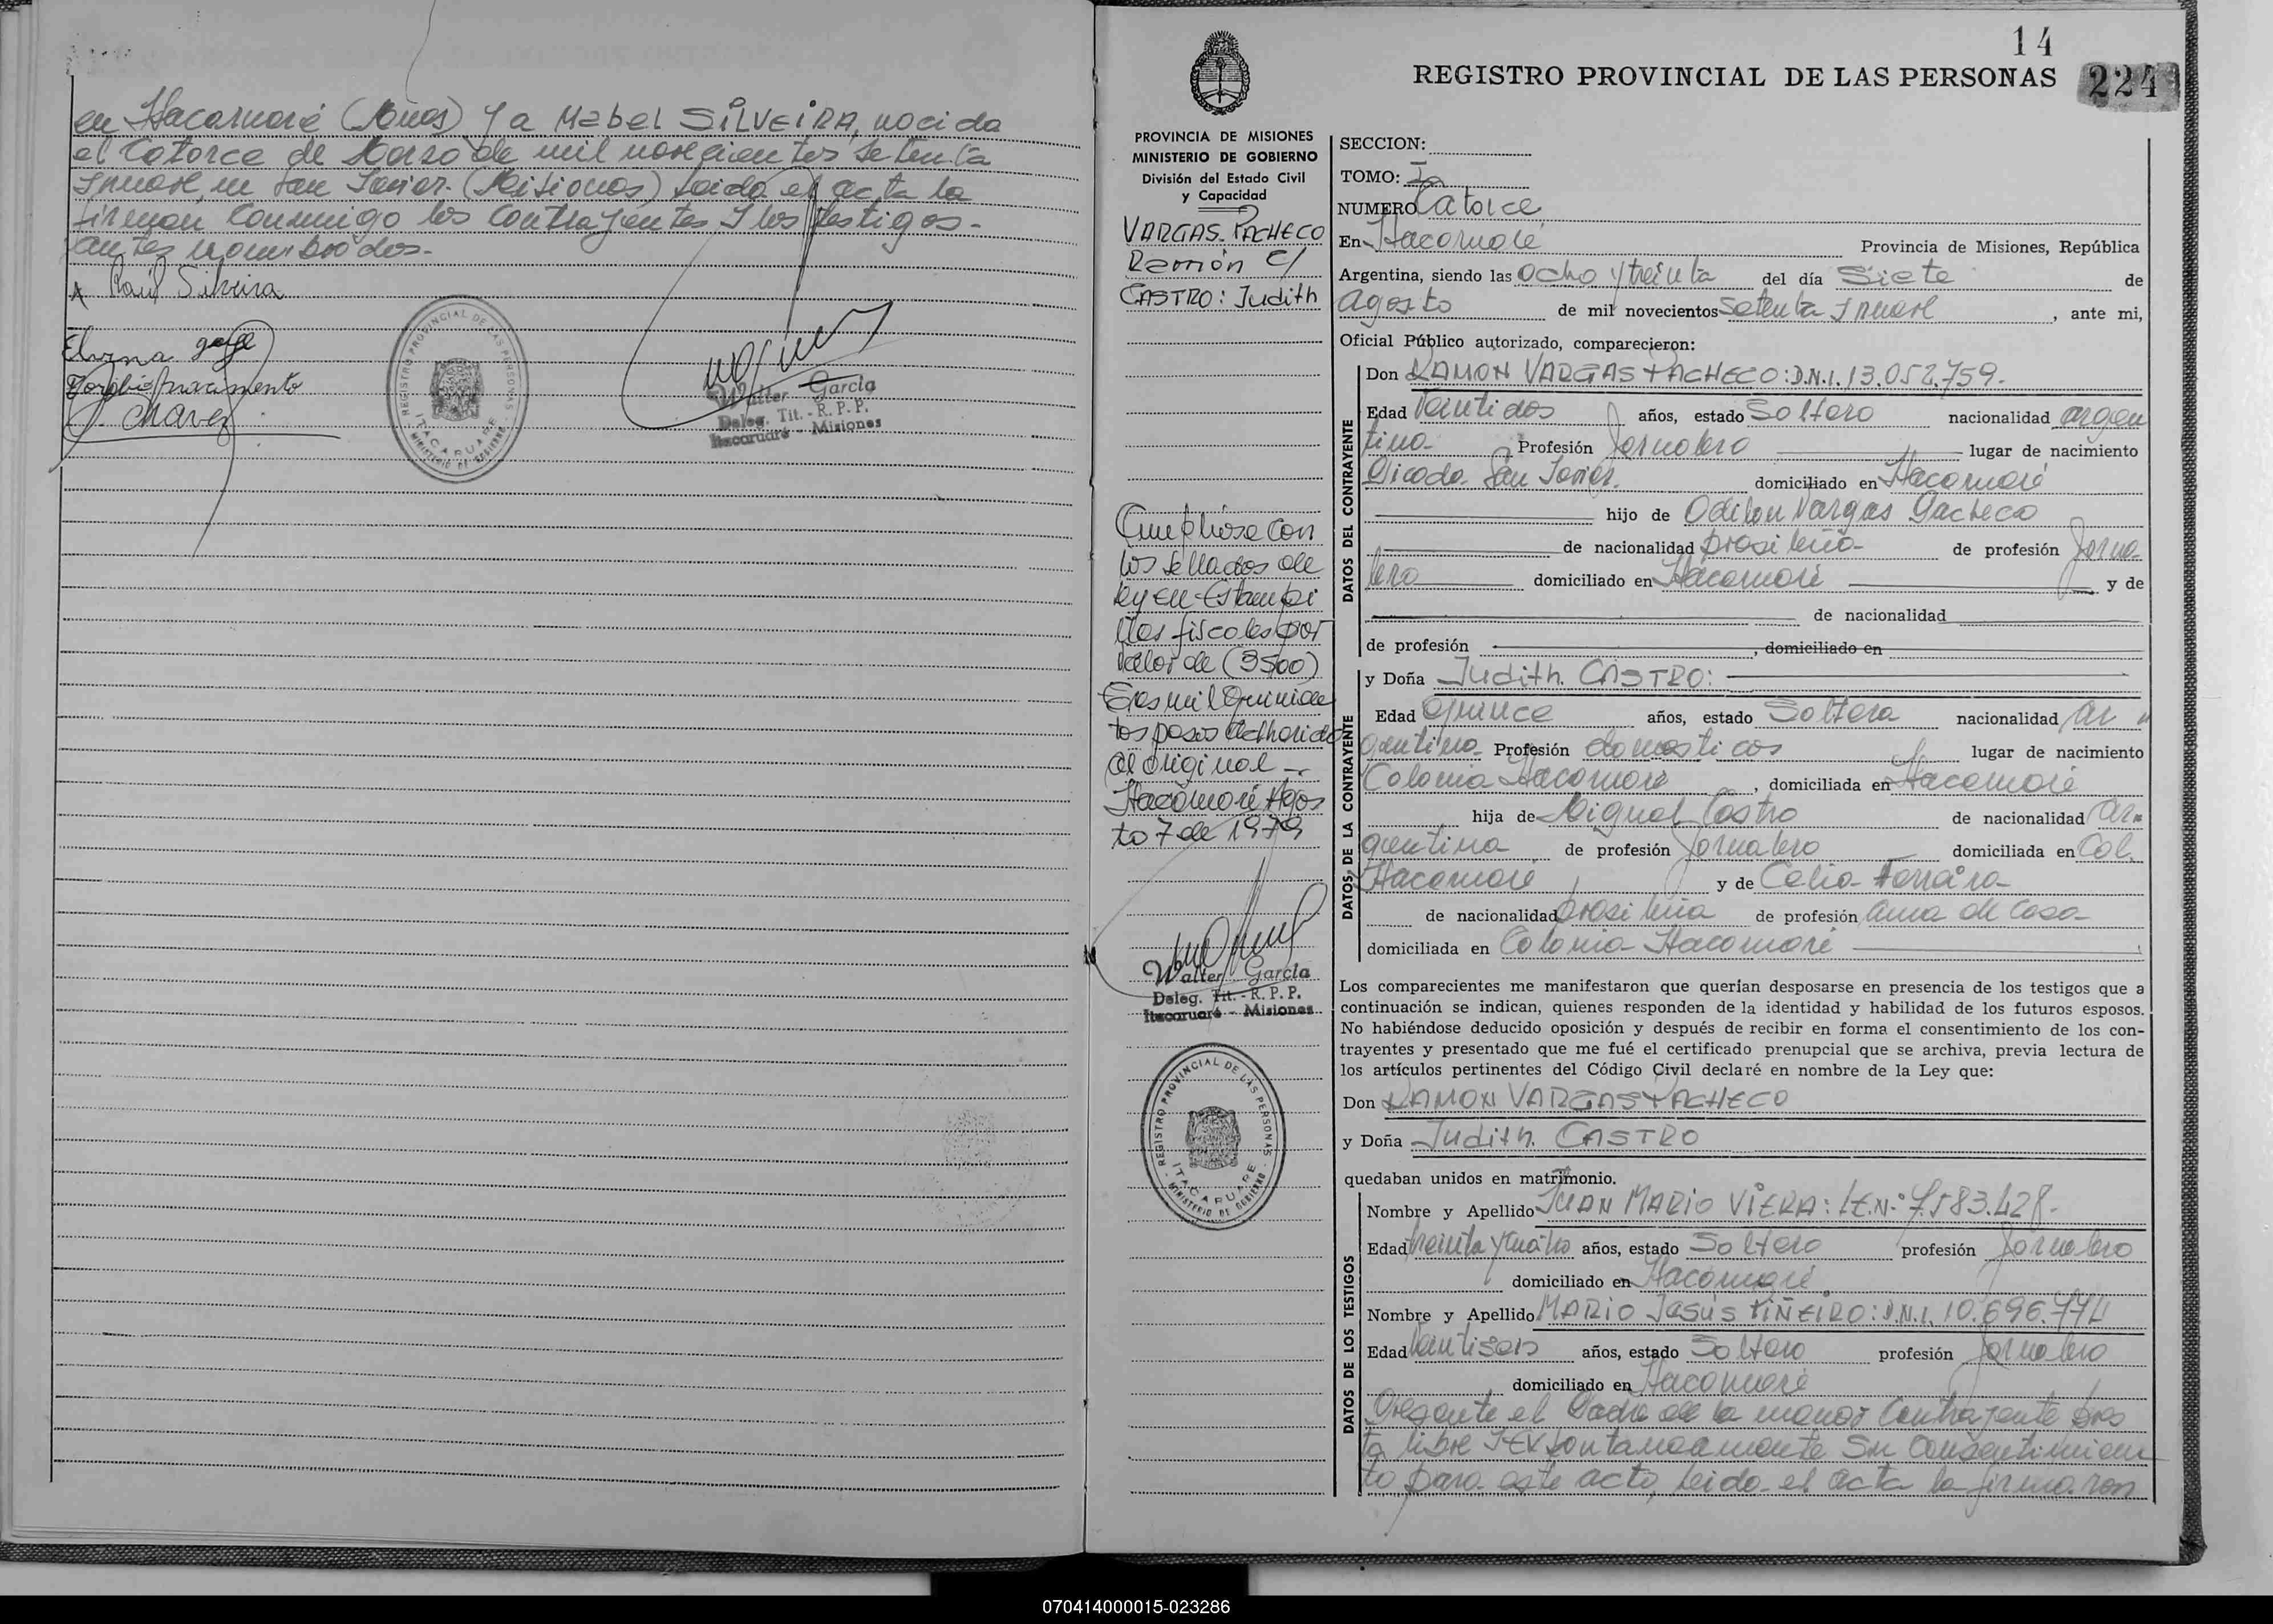 en Itacaruaré (Mnes) y a Mabel SILVEIRA, nacida
el Catorce de Marzo de mil novecientos setenta
y nueve, en San Javier. (Misiones) Leida el acta la
firman Conmigo los Contrayentes y los testigos-
antes nombrados.-
Raúl Silveira
Chavez
REGISTRO PROVINCIAL DE LAS PERSONAS
ITACARUARE
MINISTERIO DE GOBIERNO
Walter Garcia
Deleg. Tit. - R. P. P.
Itacaruaré - Misiones
14
REGISTRO PROVINCIAL DE LAS PERSONAS
224
PROVINCIA DE MISIONES
MINISTERIO DE GOBIERNO
División del Estado Civil
y Capacidad
VARGAS. PACHECO
Ramón c/
CASTRO: Judith
Cumpliose con
los sellados de
ley en Estampi
llas fiscales por
valor de (3500)
Tres mil Quinien
tos pesos adherido
al original -
Itacaruaré Agos
to 7 de 1979
Walter Garcia
Deleg. Tit. - R. P. P.
Itacaruaré - Misiones
REGISTRO PROVINCIAL DE LAS PERSONAS
ITACARUARE
MINISTERIO DE GOBIERNO
SECCION:
TOMO: I
NUMERO Catorce
En Itacaruaré Provincia de Misiones, República
Argentina, siendo las Ocho y treinta del día Siete de
agosto de mil novecientos Setenta y nueve, ante mi,
Oficial Público autorizado, comparecieron:
DATOS DEL CONTRAYENTE
Don RAMON VARGAS PACHECO: D.N.I. 13.052.759.
Edad Veintidos años, estado Soltero nacionalidad argen
tina- Profesión Jornalero lugar de nacimiento
Picada San Javier. domiciliado en Itacaruaré
hijo de Odilon Vargas Pacheco
de nacionalidad brasileña- de profesión Jorna-
lero domiciliado en Itacaruaré y de
de nacionalidad
de profesión , domiciliado en
DATOS DE LA CONTRAYENTE
y Doña Judith. CASTRO:
Edad Quince años, estado Soltera nacionalidad Ar
gentina- Profesión domesticos lugar de nacimiento
Colonia Itacaruaré, domiciliada en Itacaruaré
hija de Miguel Castro de nacionalidad Ar-
gentina de profesión Jornalero domiciliada en Col.
Itacaruaré y de Celia Ferraira-
de nacionalidad brasileña de profesión ama de Casa-
domiciliada en Colonia Itacaruaré
Los comparecientes me manifestaron que querían desposarse en presencia de los testigos que a
continuación se indican, quienes responden de la identidad y habilidad de los futuros esposos.
No habiéndose deducido oposición y después de recibir en forma el consentimiento de los con-
trayentes y presentado que me fué el certificado prenupcial que se archiva, previa lectura de
los artículos pertinentes del Código Civil declaré en nombre de la Ley que:
Don RAMON VARGAS PACHECO
y Doña Judith. CASTRO
quedaban unidos en matrimonio.
DATOS DE LOS TESTIGOS
Nombre y Apellido JUAN MARIO VIERA: L.E.Nº 7.583.428-
Edad treinta y cuatro años, estado Soltero profesión Jornalero
domiciliado en Itacaruaré
Nombre y Apellido MARIO Jesús PIÑEIRO: D.N.I. 10.696.774
Edad Veintiseis años, estado Soltero profesión Jornalero
domiciliado en Itacaruaré
Presente el Padre de la menor Contrayente pres
ta libre y expontaneamente Su Consentimien
to para este acto, leida el acta la firmaron
070414000015-023286